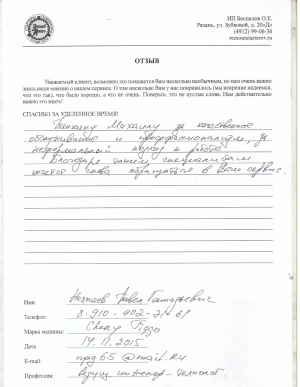 ИП Беспалов О.Е.
Рязань, ул. Зубковой, д. 20«Д»
(4912) 99-06-36
ОТЗЫВ
Уважаемый клиент, возможно это покажется Вам несколько необычным, но нам очень важно
знать ваше мнение о нашем сервисе. О том насколько Вам у нас понравилось (мы искренне надеемся,
что это так), что было хорошо, а что не очень. Поверьте, это не пустые слова. Нам действительно
важно это знать!
СПАСИБО ЗА УДЕЛЕННОЕ ВРЕМЯ!
Михаилу за качественное
обслуживание и профессионализм, за
неформальный подход к работе
Благодаря таким специалистам
хочется снова обращаться в Ваш сервис.
Имя:
Телефон: 8-910-902-71-61
Марка машины: Chery Tiggo
Дата 14.11.2015
E-mail: npg65@mail.ru
Профессия: Ведущий инженер-технолог